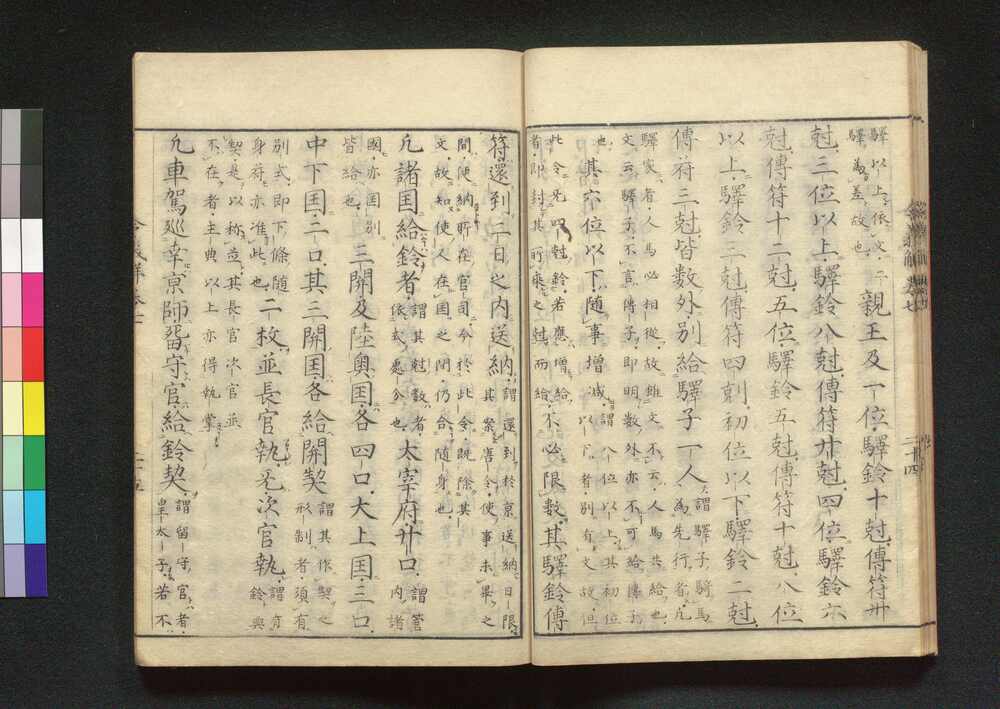 驛以上依文二
驛為差故也
親王及一位驛鈴十尅傳符卅
尅三位以上驛鈴八尅傳符廿尅四位驛鈴六
尅傳符十二尅五位驛鈴五尅傳符十尅八位
以上驛鈴三尅傳符四尅初位以下驛鈴二尅
傳符三尅皆數外別給驛子一人
謂驛子騎馬
為先行者凡
驛家者人馬必相從故雖文不云人馬共給也
文云驛子不言傳子即明數外亦不可給傳子
也
其六位以下隨事增減
謂八位以上其初位
以下者別有文故但
此令凡四尅鈴若應增給
者即封其所乘之尅而給
不必限數其驛鈴傳
符還到二日之内送納
謂還到於京送納日限
其案害令使事未畢之
間便納所在官司今於此令既除其
文故知使人在国之間仍合隨身也
凡諸国給鈴者
謂其尅數者
依式處分也
太宰府廿口
謂管
内諸
国亦国別
皆給也
三關及陸奥国各四口大上国三口
中下国二口其三關国各給關契
謂其作契之
形制者須有
別式即下條隨
身符亦准此也
二枚並長官執无次官執
謂有
鈴與
契是以称並其長官次官並
不在者主典以上亦得執掌
凡車駕巡幸京師留守官給鈴契
謂留守官者
皇太子若不